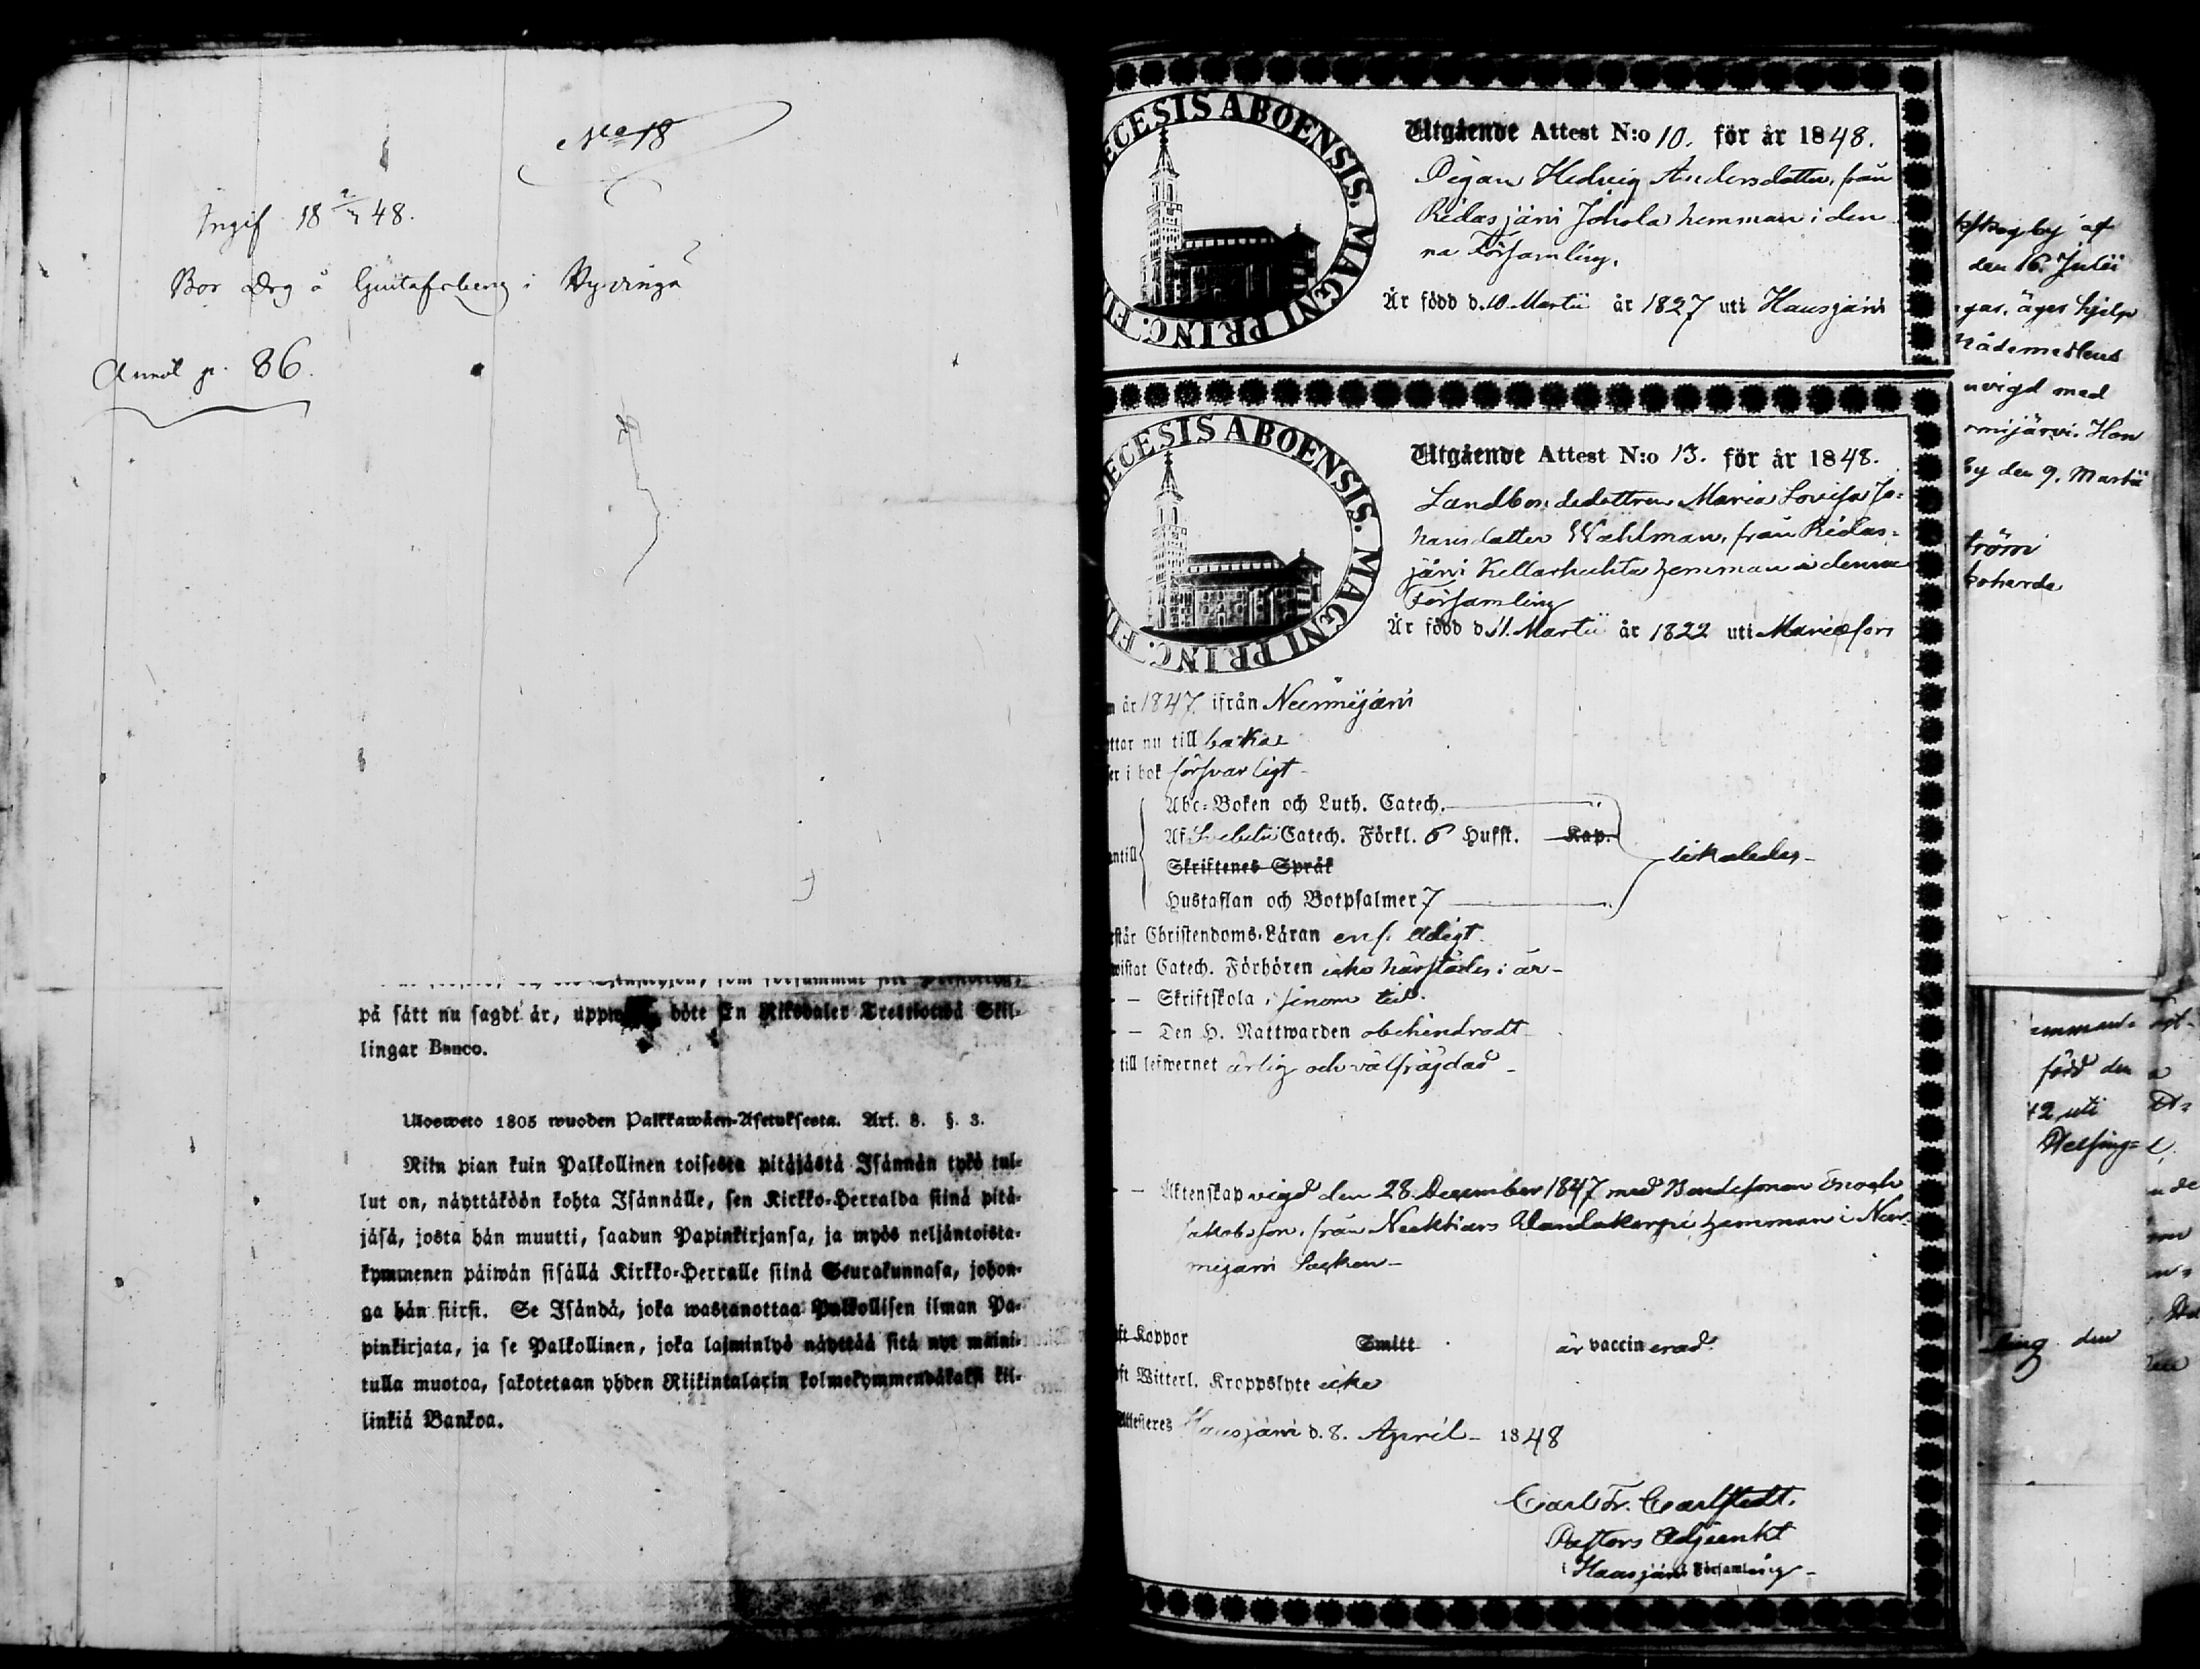 No 18
Ingif 18 2/4 48.
Bor Drg å Gustafsberg i Hyvinge
Annot p. 86.
på sätt nu sagdt är, böte En Riksdaler Trettiotwå Skil-
lingar Banco.
Ulosweto 1805 wuoden Palkkawäen-Asetuksesta. Art. 8. §. 3.
Niin pian kuin Palkollinen toisesta pitäjästä Isännän tykö tul-
lut on, näyttäköön kohta Isännälle, sen Kirkko-Herralda siinä pitä-
jäsä, josta hän muutti, saadun Papinkirjansa, ja myös neljäntoista-
kymmenen päiwän sisällä Kirkko-Herralle siinä Seurakunnasa, johon-
ga hän siirsi. Se Isändä, joka wastanottaa Palkollisen ilman Pa-
pinkirjata, ja se Palkollinen, joka laiminlyö näyttää sitä nyt maini-
tulla muotoa, sakotetaan yhden Riikintalarin kolmekymmendäkaksi kil-
linkiä Bankoa.
ECESIS ABOENSIS. MAGNI PRINC. FI
Utgående Attest N:o 10. för år 1848.
Pigan Hedvig Andersdotter, från
Ridasjärvi Johola hemman i den
na Församling.
Är född d. 10 Martii år 1827 uti Hausjärvi
ECESIS ABOENSIS. MAGNI PRINC. FI
Utgående Attest N:o 13. för år 1848.
Landbondedottren Maria Lovisa Jo=
hansdotter Wahlman, från Ridas=
järvi Kellarhuhta hemman i denna
Församling
Är född d 11. Martii år 1822 uti Mariæfors
år 1847 ifrån Nurmijärvi
ttar nu till baka
er i bok försvarligt
Abc-Boken och Luth. Catech.
Af Svebilii Catech. Förkl. 6 Hufst. Kap.
antill
Skriftenes Språk
likaledes
Hustaflan och Botpsalmer 7
står Christendoms-Läran enfaldigt
wistat Catech. Förhören icke härstädes i år
— Skriftskola i sinom tid.
— Den H. Nattwarden obehindradt
till lefwernet ärlig och välfrägdad
— Äktenskap vigd den 28. December 1847 med Bondesonen Enoch
Jakobsson, från Nukkars hemman i Nur=
mijärvi Socken
ft Koppor Smitt är vaccinerad
ft Witterl. Kroppslyte icke
Attesteres Hausjärvi d. 8. April 1848
Carl Fr. Carlstedt.
Pastors Adjunkt
i Hausjärvi Församling
by af
den 16. Julii
gas, äger hjelp
nådemedlens
nvigd med
rmijärvi. Hon
by den 9. Martii
tröm
emman
född den
42 uti
Helsing=
ling den